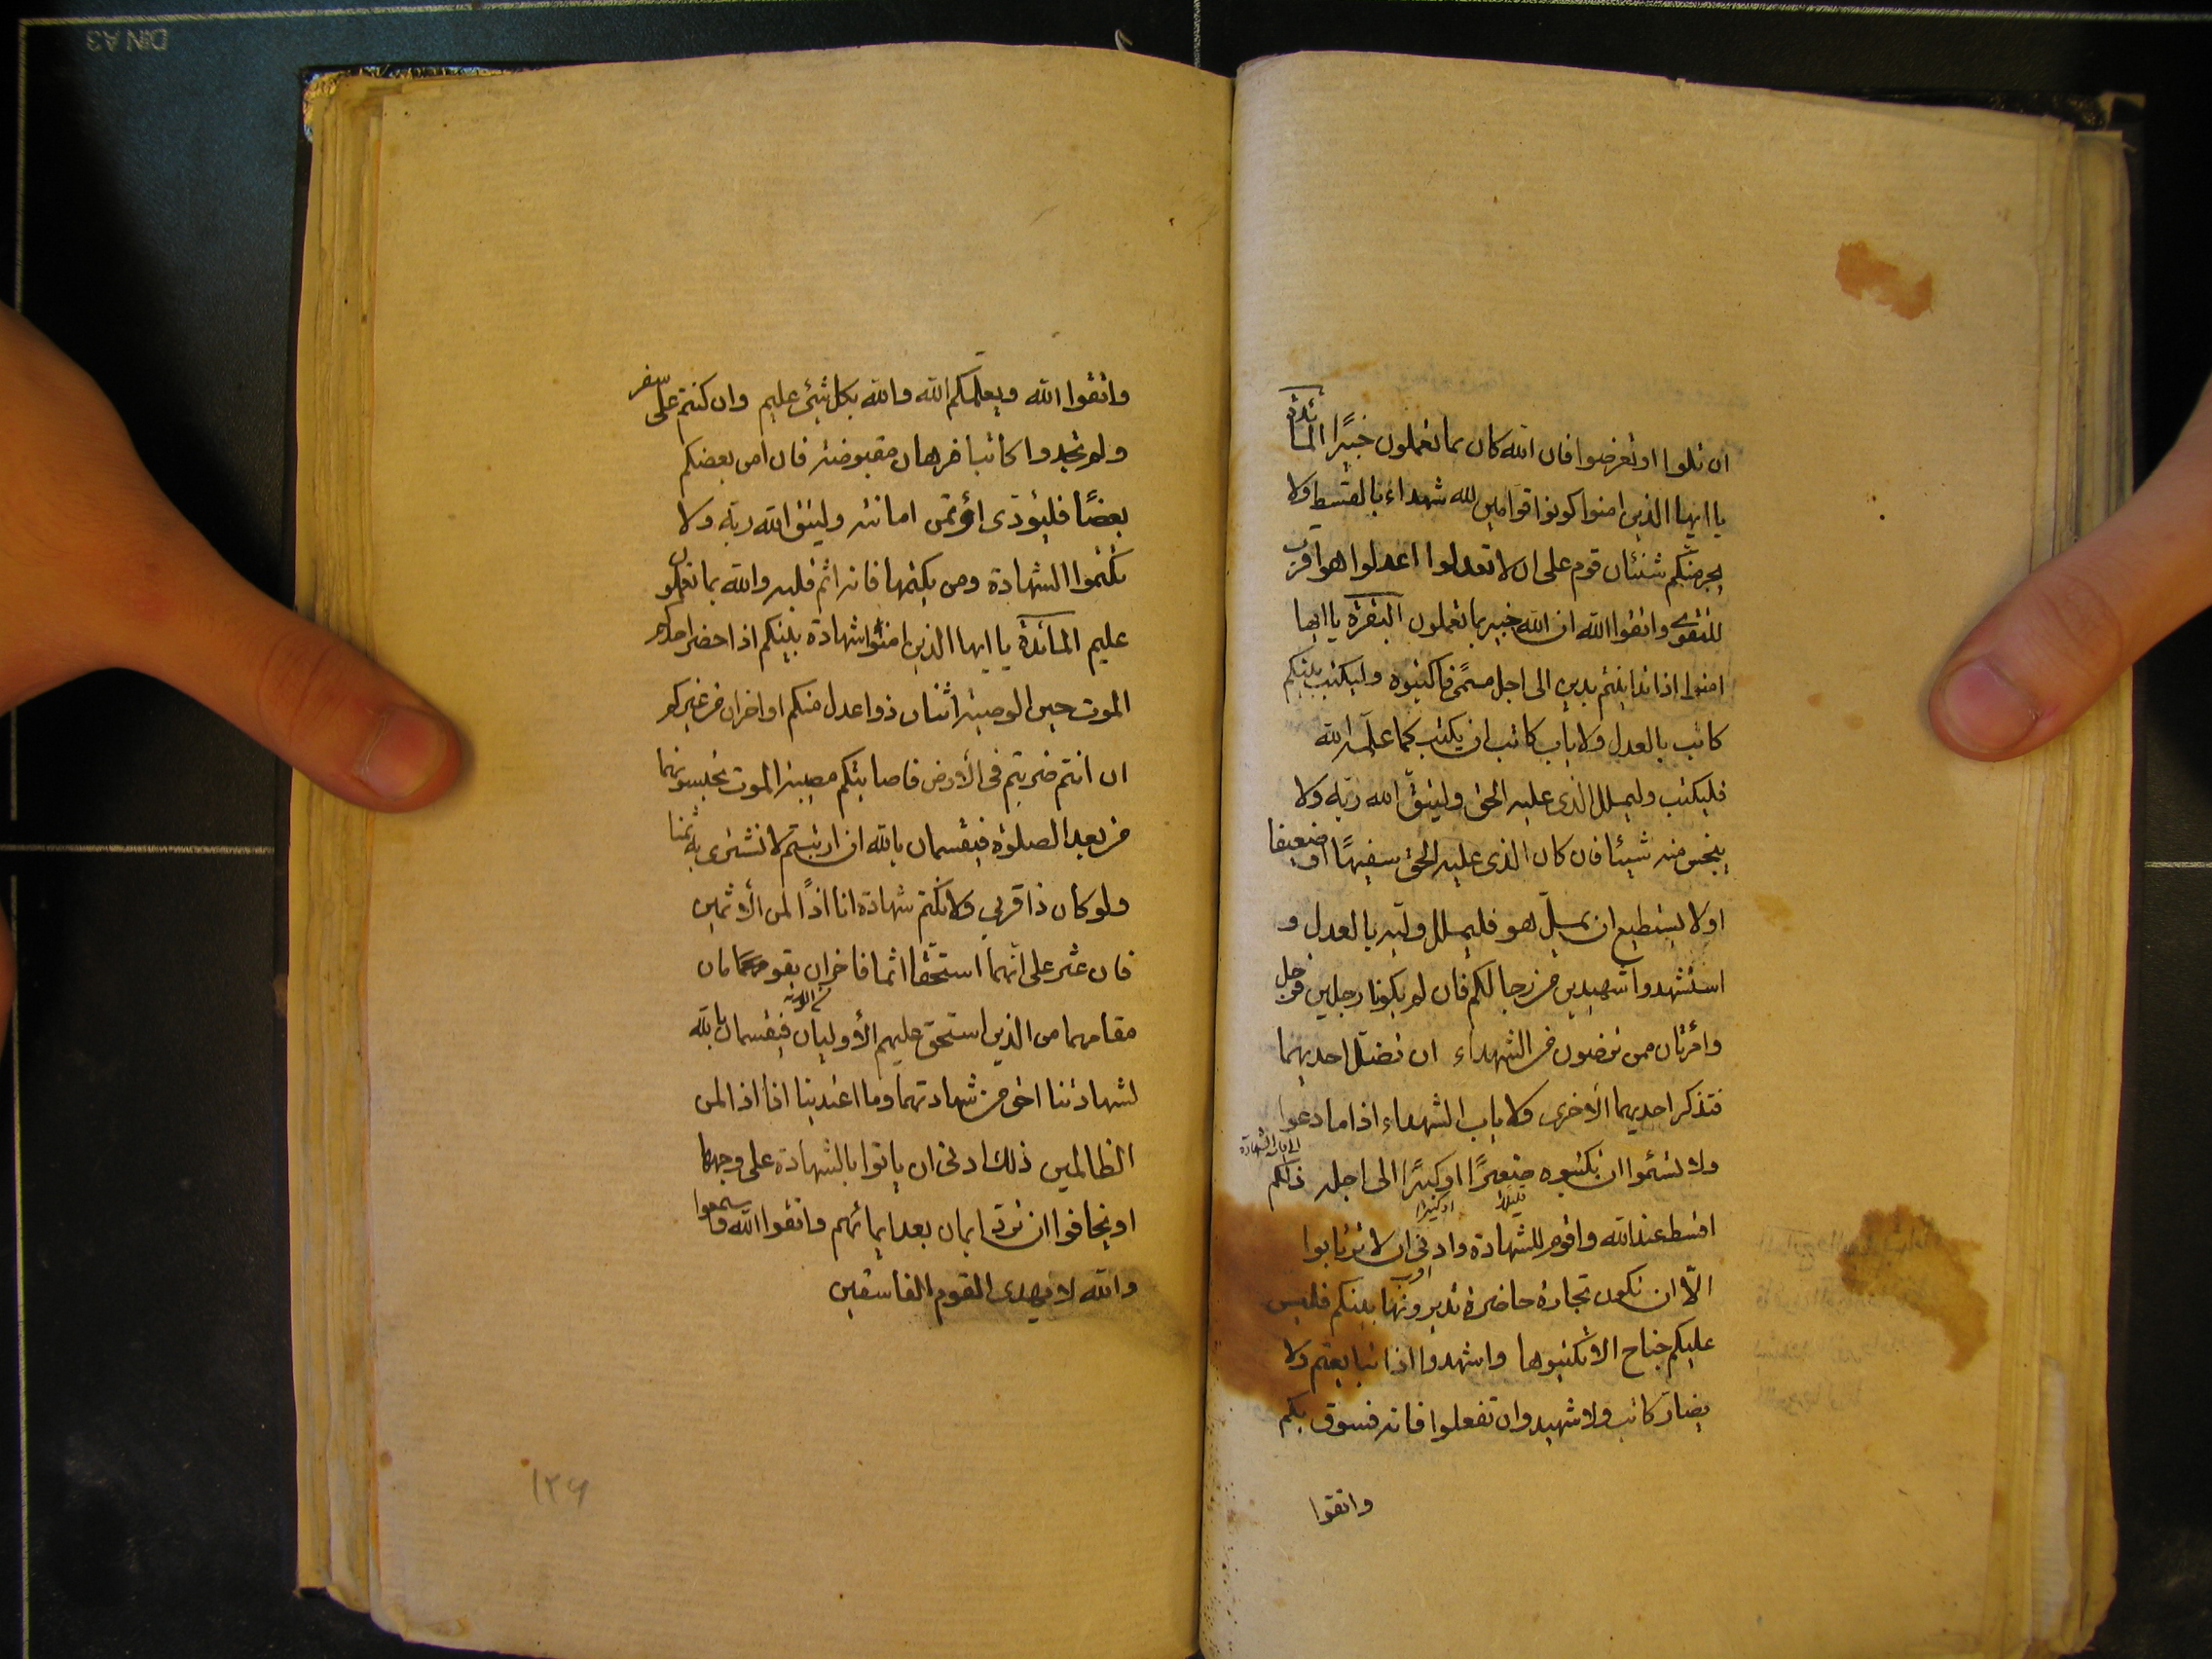 ان تلوا او تعرضوا فان الله كان بما تعملون خبيرًا المائدة
يا ايها الذين امنوا كونوا قوامين لله شهداء بالقسط ولا
يجرمنّكم شنئان قوم على ان لا تعدلوا اعدلوا هو اقرب
للتقوى واتقوا الله ان الله خبير بما تعملون البقرة يا ايها
امنوا اذا تداينتم بدين الى اجل مسمًى فاكتبوه وليكتب بينكم
كاتب بالعدل ولا ياب كاتب ان يكتب كما علّمه الله
فليكتب وليملل الذى عليه الحق وليتق الله ربّه ولا
يبخس منه شيئا فان كان الذى عليه الحق سفيهًا او ضعيفا
او لا يستطيع ان يملّ هو فليملل وليّه بالعدل و
استشهدوا شهيدين من رجالكم فان لم يكونا رجلين فرجل
وامرئتان ممن ترضون من الشهداء ان تضلّ احديهما
فتذكر احديهما الأخرى ولا ياب الشهداء اذا ما دعوا
ولا تسئموا ان تكتبوه صغيرًا او كبيرًا الى اجله ذلكم
قليلا او كثيرا
اقسط عند الله واقوم للشهادة وادنى ان لا ترتابوا
اقرب
الّا ان تكون تجارة حاضرة تديرونها بينكم فليس
عليكم جناح الا تكتبوها واشهدوا اذا تبايعتم ولا
يضارّ كاتب ولا شهيد وان تفعلوا فانه فسوق بكم
واتقوا
واتقوا الله ويعلّمكم الله والله بكل شئ عليم وان كنتم على سفر
ولم تجدوا كاتبا فرهان مقبوضة فان امن بعضكم
بعضًا فليؤدّى اؤتمن امانته وليتق الله ربّه ولا
تكتموا الشهادة ومن يكتمها فانه اثم قلبه والله بما تعملون
عليم المائدة يا ايها الذين امنوا شهادة بينكم اذا حضر احدكم
الموت حين الوصية اثنان ذوا عدل منكم او اخران من غيركم
ان انتم ضربتم فى الأرض فاصابتكم مصيبة الموت تحبسونهما
من بعد الصلوة فيقسمان بالله ان ارتبتم لا نشترى به ثمنا
ولو كان ذا قربى ولا نكتم شهادة انا اذًا لمن الأثمين
فان عثر على انّهما استحقّا اثما فاخران يقومان
مقامهما من الذين استحق عليهم الأوليان فيقسمان بالله
لشهادتنا احق من شهادتهما وما اعتدينا انا اذا لمن
الظالمين ذلك ادنى ان ياتوا بالشهادة على وجهها
او يخافوا ان تردّ ايمان بعد ايمانهم واتقوا الله واسمعوا
والله لا يهدى القوم الفاسقين
١٢۶
DIN A3